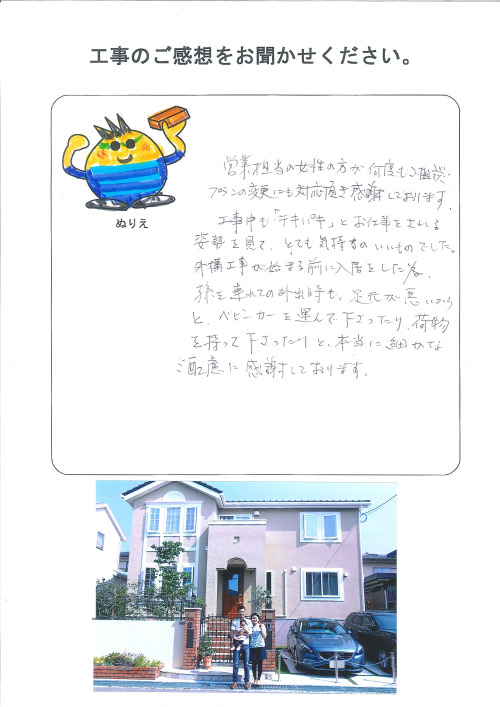 工事のご感想をお聞かせください。
ぬりえ
営業担当の女性の方が何度もご相談、
プランの変更にも対応頂き感謝しております。
工事中も「テキパキ」とお仕事をされる
姿勢を見て、とても気持ちのいいものでした。
外構工事が始まる前に入居をした為、
孫を連れての外出時も、足元が悪いから
と、ベビーカーを運んで下さったり、荷物
を持って下さったりと、本当に細かな
ご配慮に感謝しております。